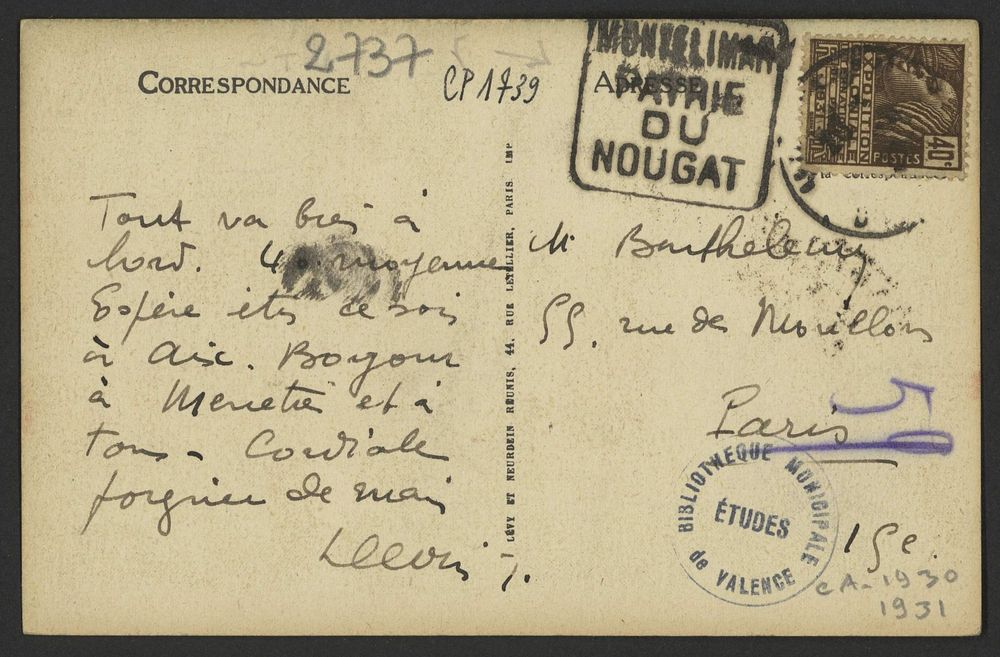 2737
CP 1739
CORRESPONDANCE
ADRESSE
MONTELIMAR
PATRIE
DU
NOUGAT
EXPOSITION
COLONIALE
INTERNATIONALE
PARIS 1931
POSTES
40c
la correspondance
Tout va bien à
bord. 40 moyenne
Espère être ce soir
à Aix. Bonjour
à et à
tous. Cordiale
poignée de main
LÉVY ET NEURDEIN RÉUNIS, 44, RUE LETELLIER, PARIS IMP
M. Barthelemy
55, rue des Morillons
Paris
15e.
BIBLIOTHEQUE MUNICIPALE
ÉTUDES
de VALENCE
CA. 1930
1931